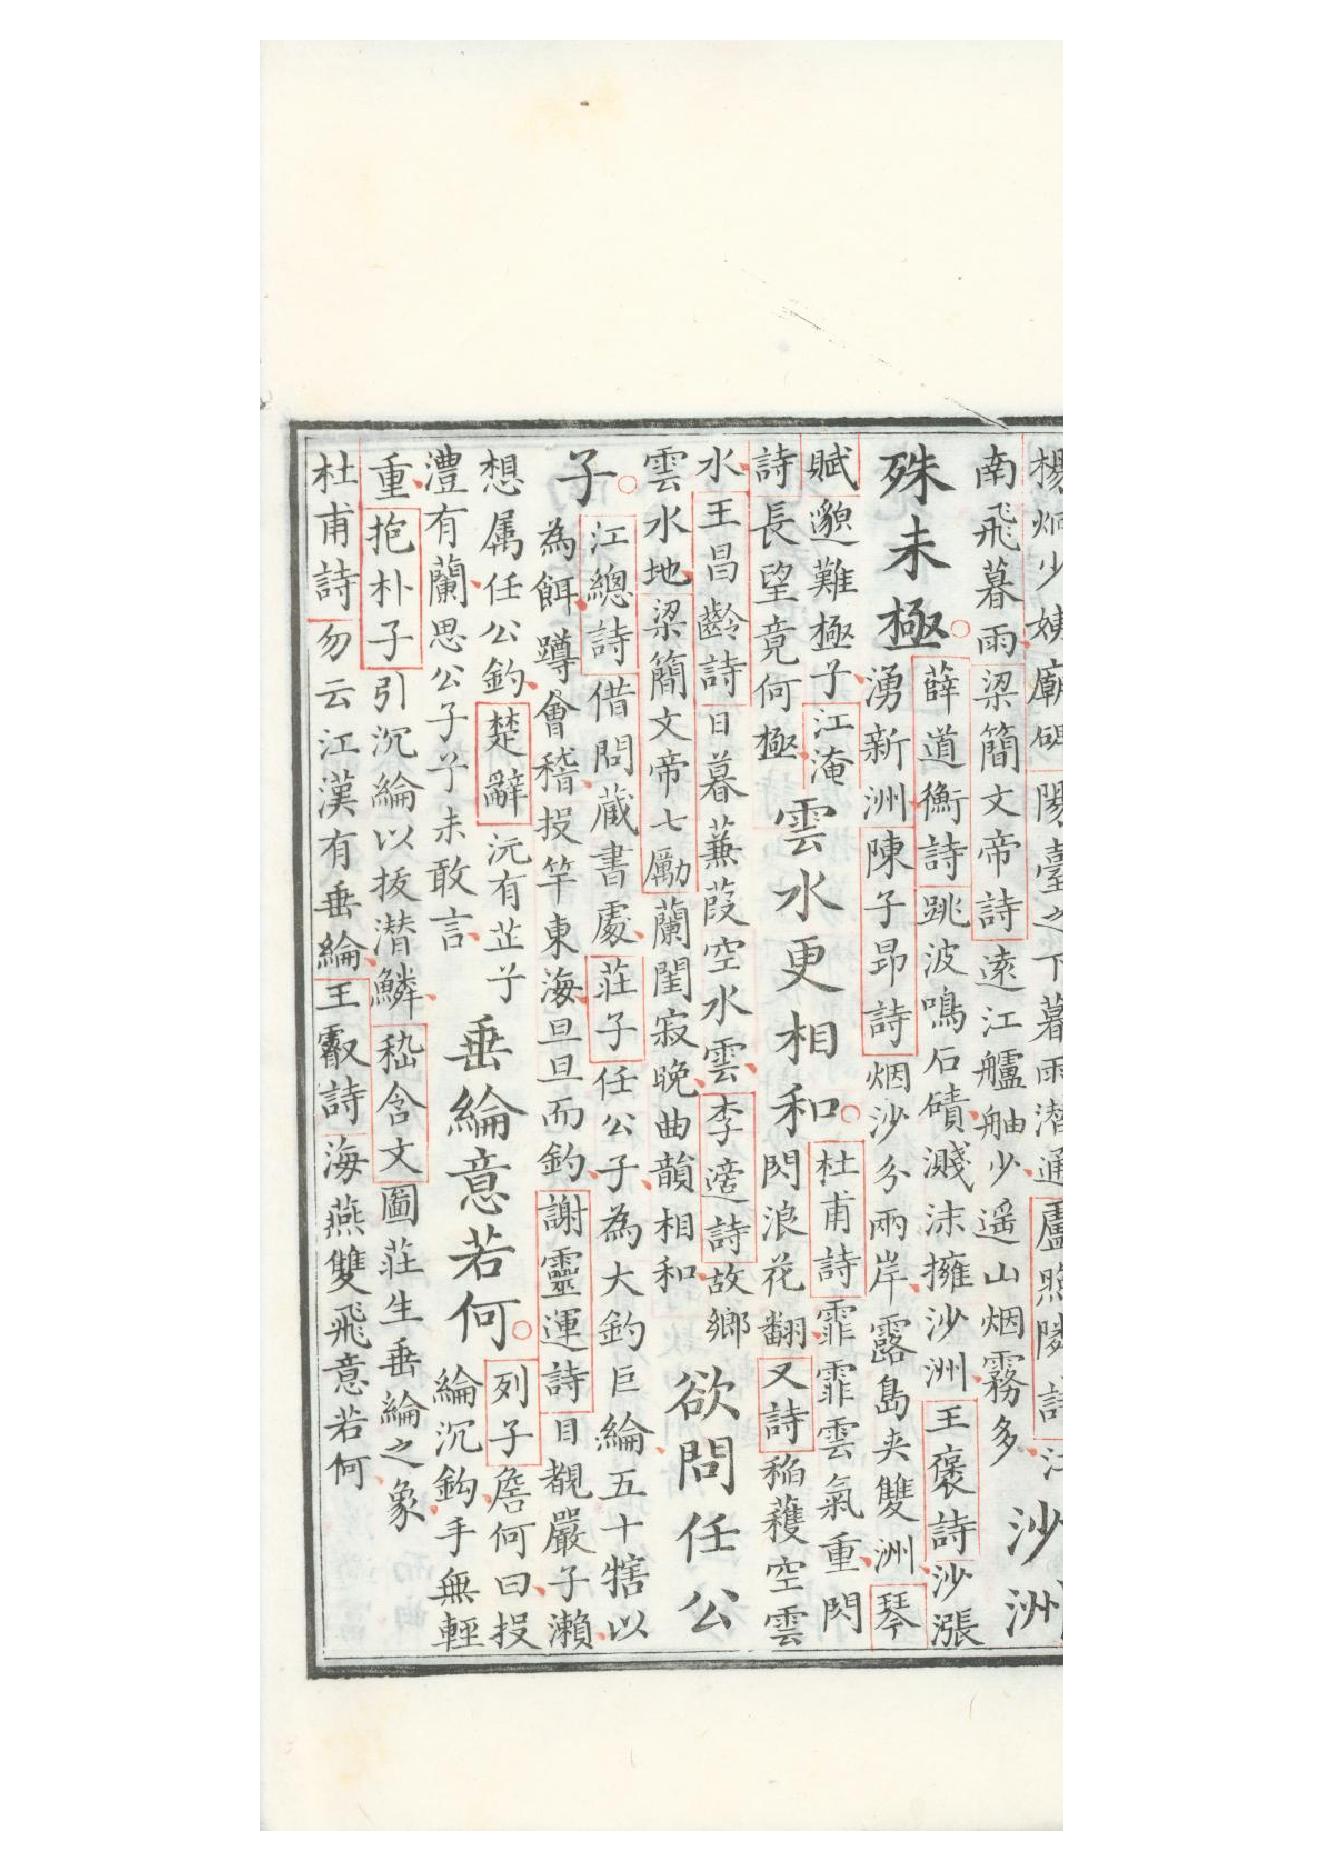 楊炯少姨廟碑陽臺之下暮雨潜通盧照隣詩江
南飛暮雨梁簡文帝詩遠江艫舳少遥山烟霧多
沙洲
殊未極
薛道衡詩跳波鳴石磧濺沫擁沙洲王褒詩沙漲
湧新洲陳子昂詩烟沙分兩岸露島夾雙洲琴
賦邈難極子江淹
詩長望竟何極
雲水更相和
杜甫詩霏霏雲氣重閃
閃浪花翻又詩稲穫空雲
水王昌齡詩日暮蒹葭空水雲李適詩故鄉
雲水地梁簡文帝七勵蘭閨寂晚曲韻相和
欲問任公
子
江總詩借問蔵書處莊子任公子為大釣巨綸五十犗以
為餌蹲會稽投竿東海旦旦而釣謝靈運詩目覩嚴子瀬
想属任公釣楚辭沅有芷兮
澧有蘭思公子兮未敢言
垂綸意若何
列子詹何曰投
綸沉鈎手無輕
重抱朴子引沉綸以抜潜鱗嵇含文圖莊生垂綸之象
杜甫詩勿云江漢有垂綸王叡詩海燕雙飛意若何